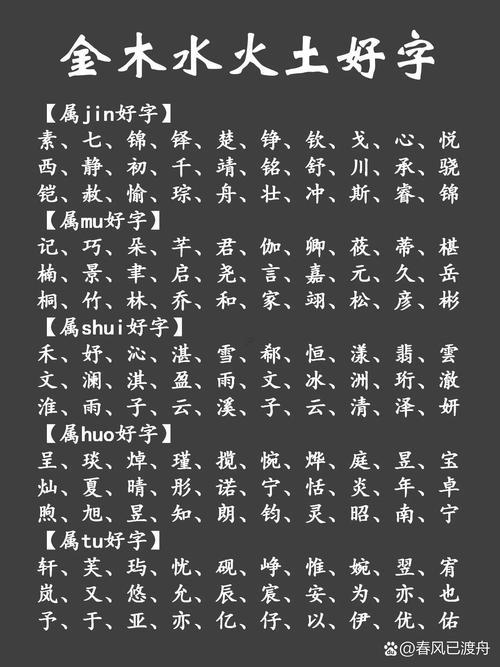 金木水火土好字
【属jin好字】
素、七、锦、铎、楚、铮、钦、戈、心、悦
西、静、初、千、靖、铭、舒、川、承、骁
铠、赦、愉、琮、舟、壮、冲、斯、睿、锦
【属mu好字】
记、巧、朵、芊、君、伽、卿、莜、蒂、椹
楠、景、聿、启、尧、言、嘉、元、久、岳
桐、竹、林、乔、和、家、翊、松、彦、彬
【属shui好字】
禾、妤、沁、湛、雪、郗、恒、漾、翡、雲
文、澜、淇、盈、雨、文、冰、洲、珩、澈
淮、雨、子、云、溪、子、云、清、泽、妍
【属huo好字】
呈、琰、焯、瑾、搅、惋、烨、庭、昱、宝
灿、夏、晴、彤、诺、宁、恬、炎、年、卓
煦、旭、昱、知、朗、钧、灵、昭、南、宁
【属tu好字】
轩、芙、玙、忧、砚、峥、惟、婉、翌、宥
岚、又、悠、允、辰、宸、安、为、亦、也
予、于、亚、亦、亿、仔、以、伊、优、佑
@春风已渡舟